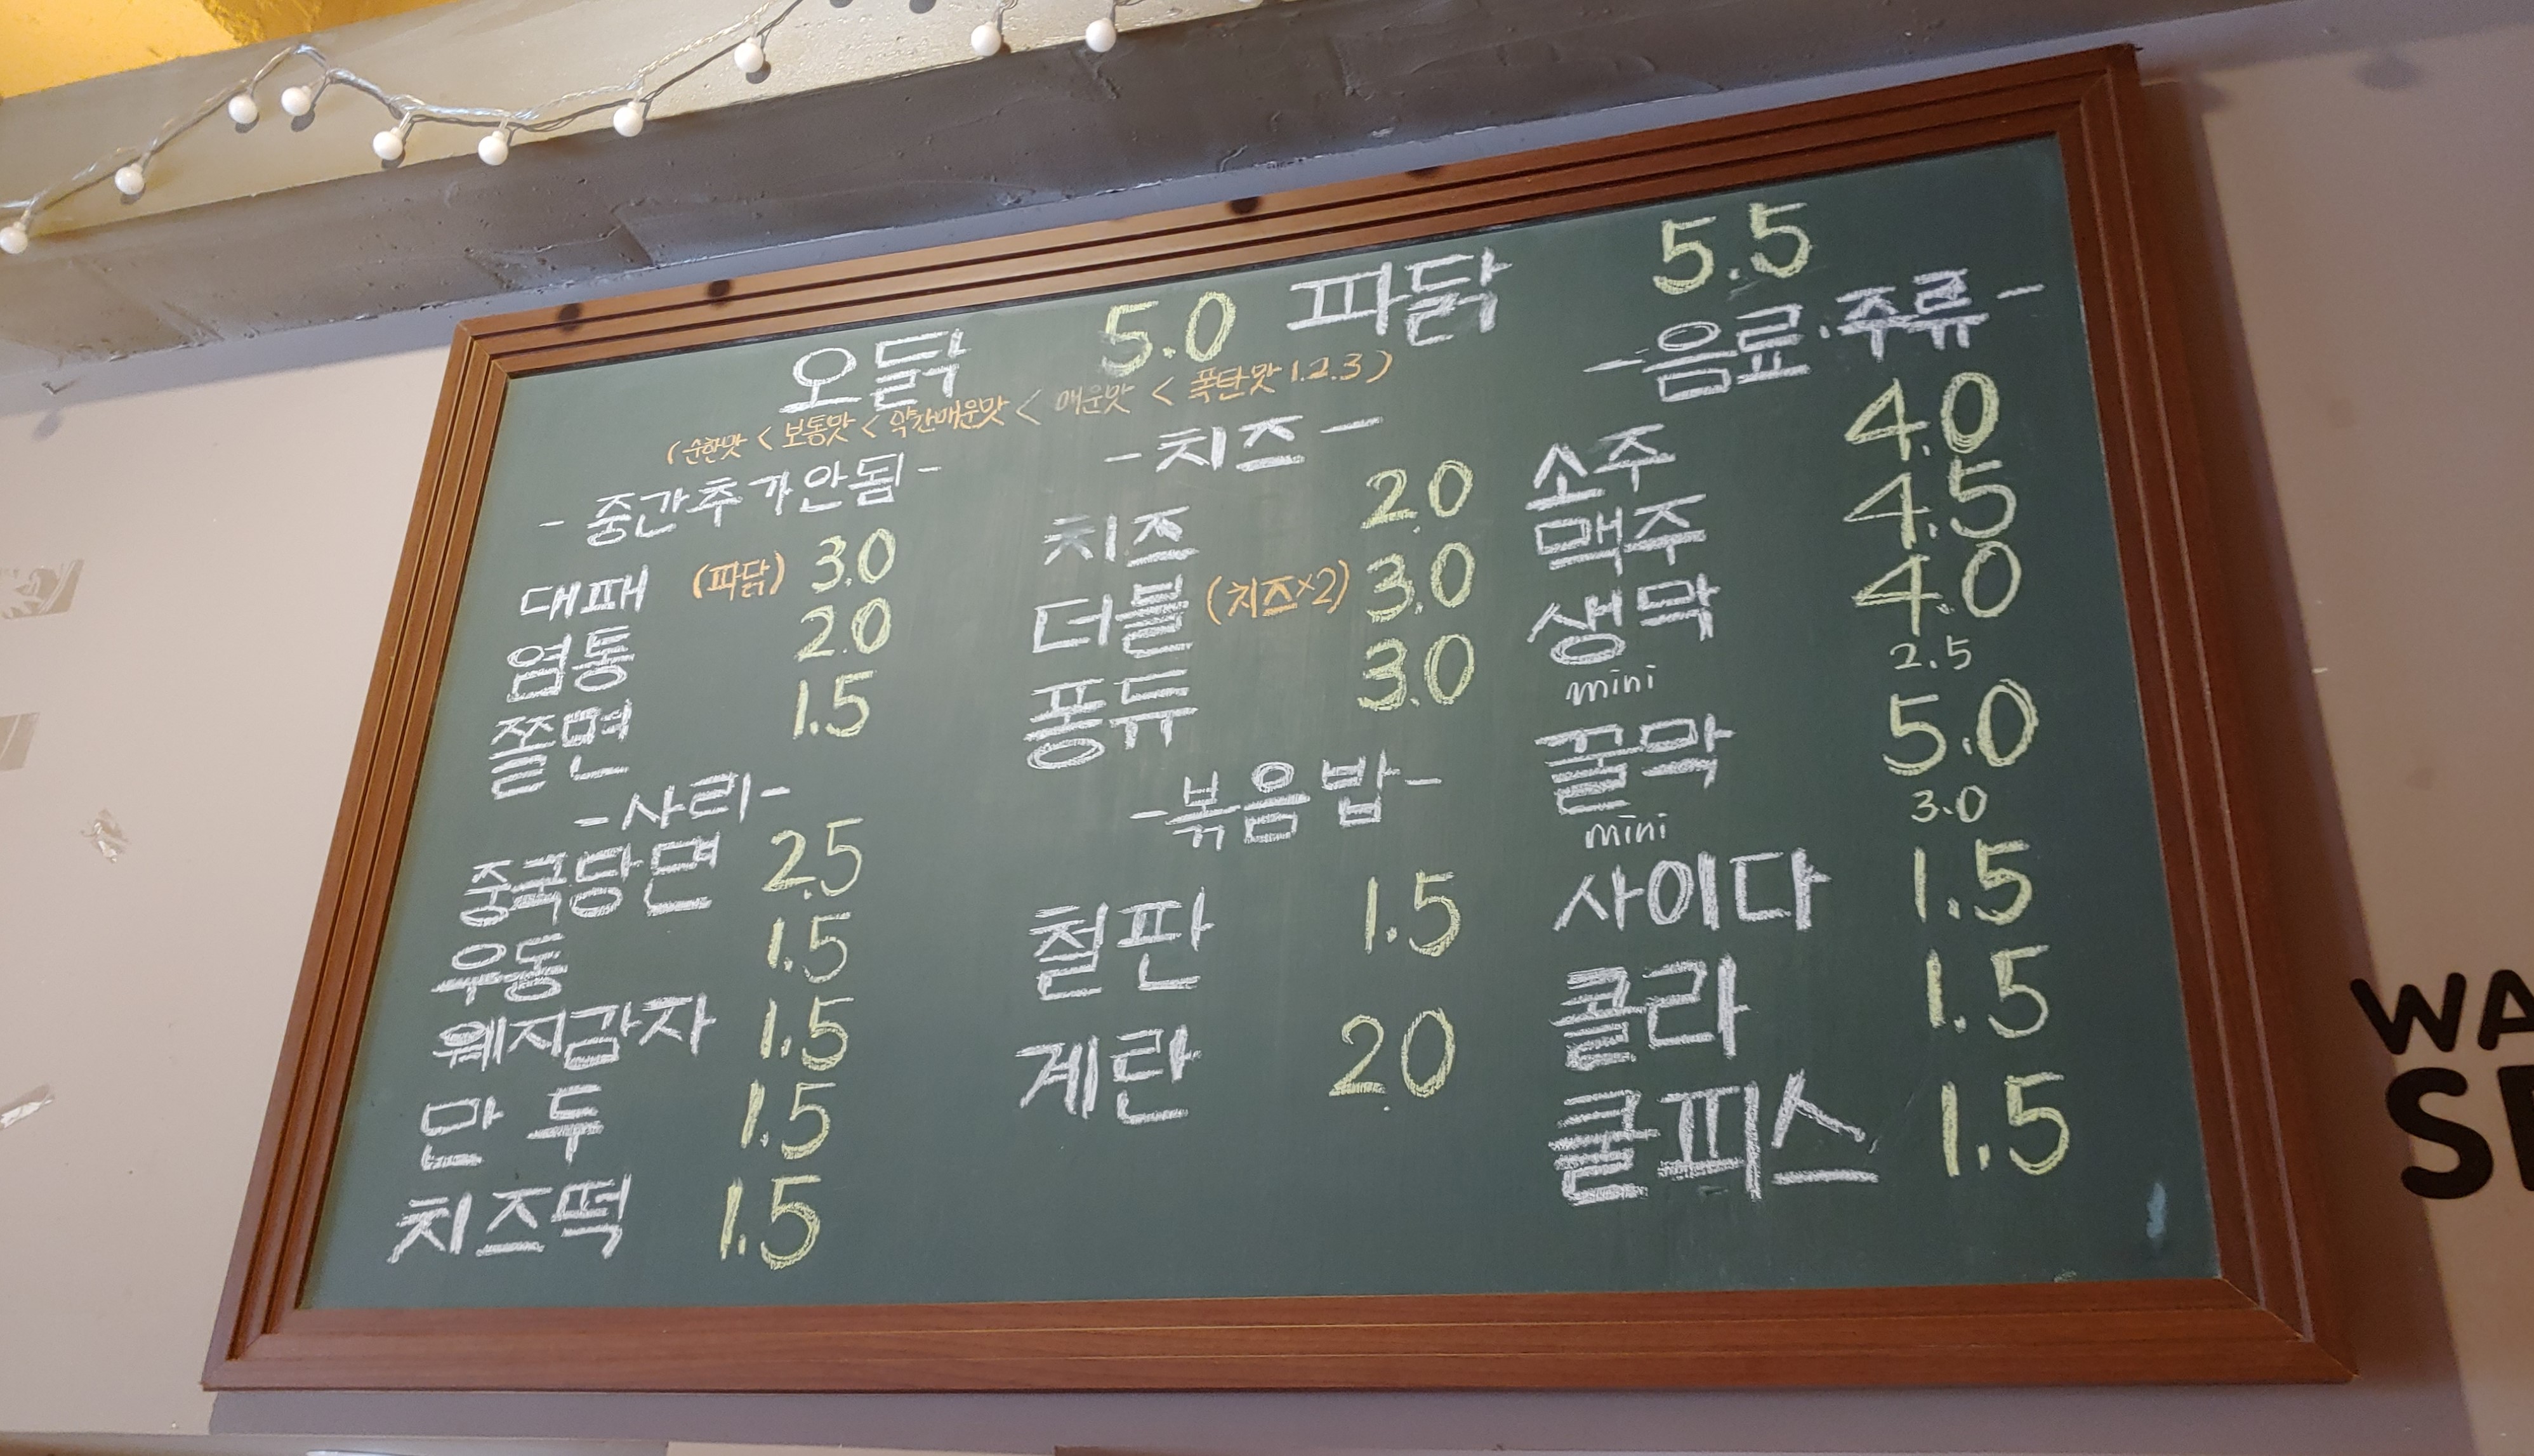 오닭 5.0 파닭 5.5
(순한맛 < 보통맛 < 약간매운맛 < 매운맛 < 폭탄맛 1.2.3)
- 중간추가안됨 -
대패 (파닭) 3.0
염통 2.0
쫄면 1.5
- 사리 -
중국당면 2.5
우동 1.5
웨지감자 1.5
만두 1.5
치즈떡 1.5
- 치즈 -
치즈 2.0
더블 (치즈×2) 3.0
퐁듀 3.0
- 볶음밥 -
철판 1.5
계란 2.0
- 음료.주류 -
소주 4.0
맥주 4.5
생막 4.0
mini 2.5
꿀막 5.0
mini 3.0
사이다 1.5
콜라 1.5
쿨피스 1.5
WA